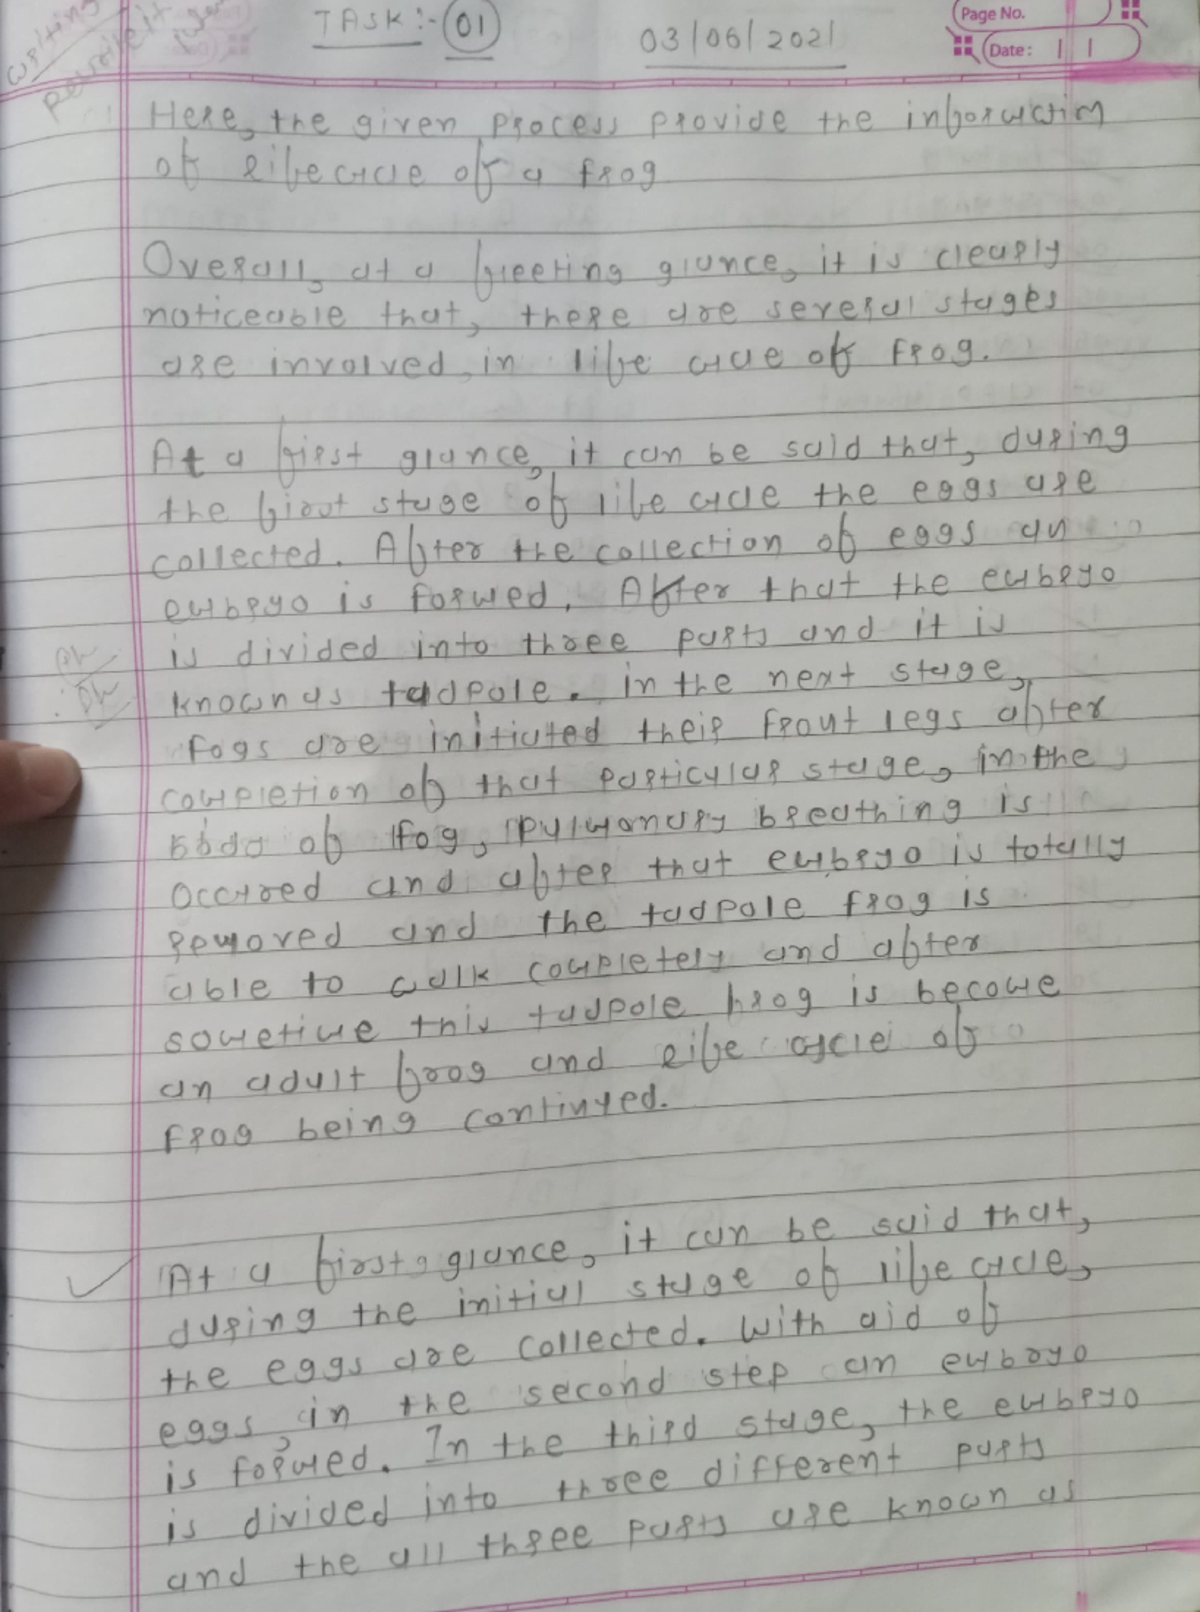 writing
TASK:- 01
03/06/2021
Page No.
Date:
Here, the given process provide the information
of lifecycle of a frog
Overall, at a fleeting glance, it is clearly
noticeable that, there are several stages
are involved in life cycle of Frog.
At a first glance, it can be said that, during
the first stage of life cycle the eggs are
collected. After the collection of eggs an
embryo is formed. After that the embryo
is divided into three parts and it is
known as tadpole. in the next stage,
fogs are initiated their front legs after
completion of that particular stage, in the
body of fog, pulmonary breathing is
occured and after that embryo is totally
removed and the tadpole frog is
able to walk completely and after
sometime this tadpole frog is become
an adult frog and life cycle of
frog being continued.
At a first glance, it can be said that,
during the initial stage of life cycle,
the eggs are collected. With aid of
eggs, in the second step an embryo
is formed. In the third stage, the embryo
is divided into three different parts
and the all three parts are known as